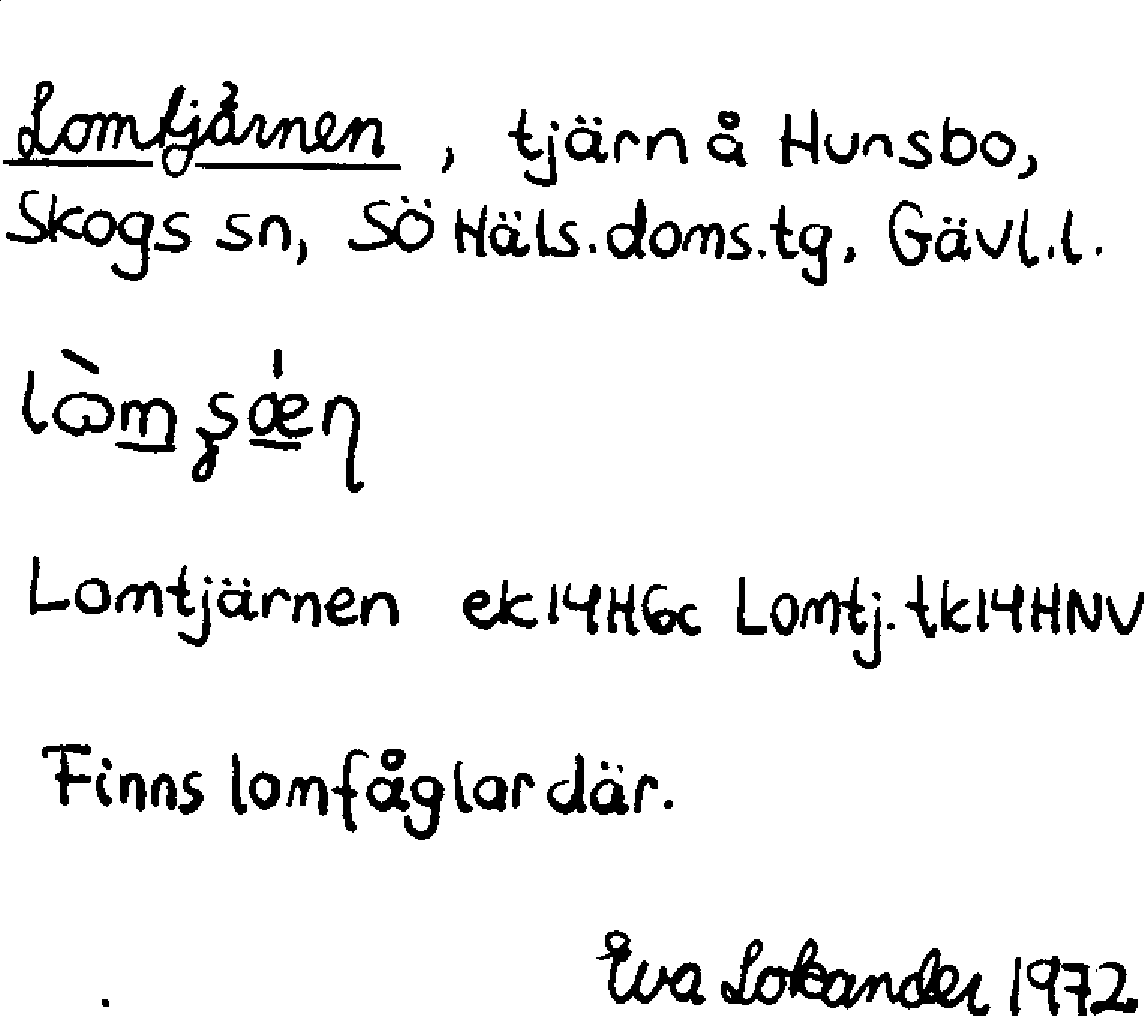 Lomtjärnen, tjärn å Hunsbo,
Skogs sn, SÖ Häls.doms.tg. Gävl.l.
Lomtjärnen ek14H6c Lomtj. tk14HNV
Finns lomfåglar där.
Eva Lokander 1972